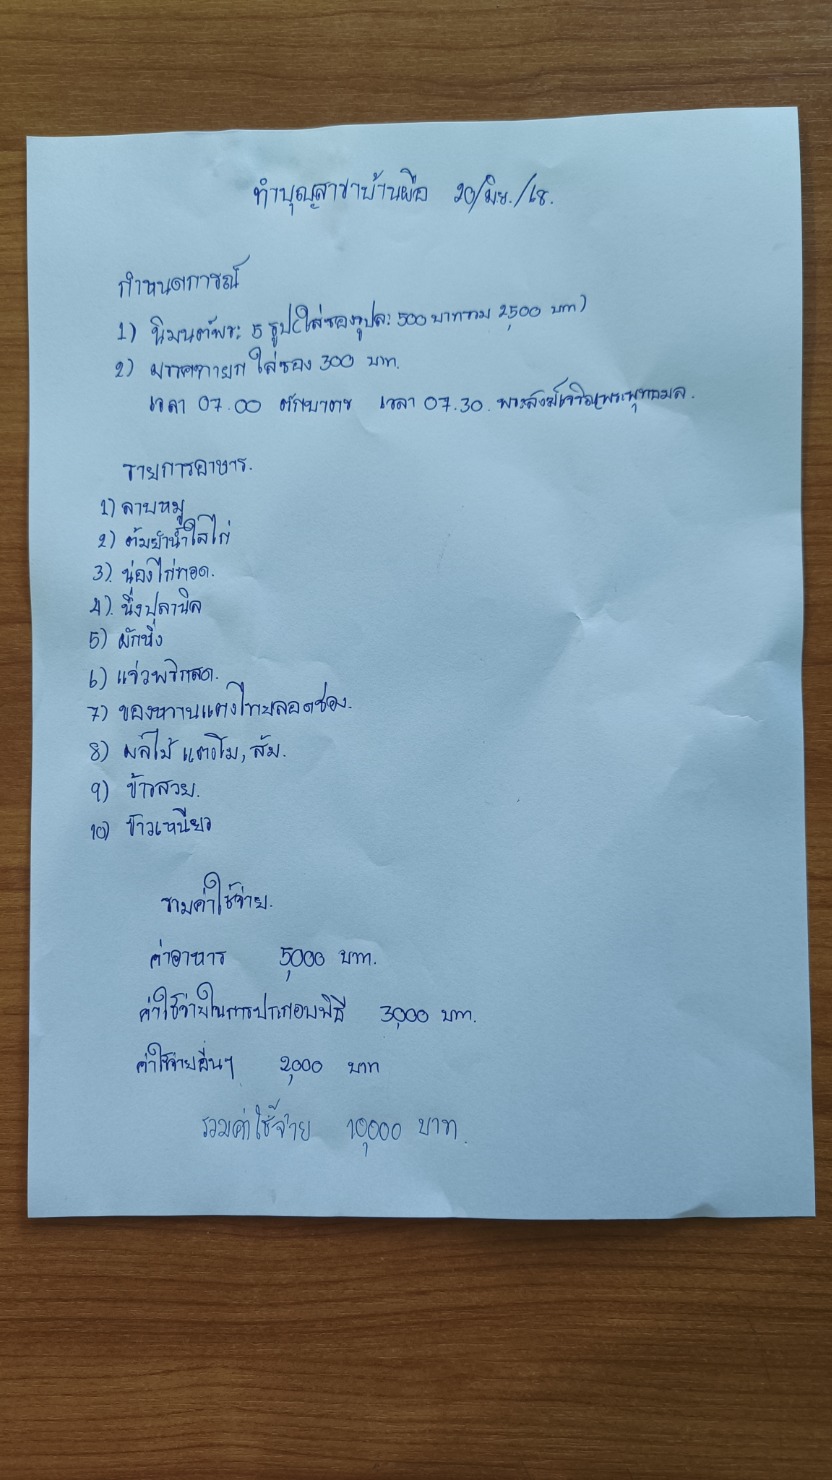 ทำบุญสาขาบ้านผือ 20/มิย./68.
กำหนดการณ์
1) นิมนต์พระ 5 รูป(ใส่ซองรูปละ 500 บาทรวม 2,500 บาท)
2) มรรคทายก ใส่ซอง 300 บาท.
เวลา 07.00 ตักบาตร เวลา 07.30. พระสงฆ์เจริญพระพุทธมล.
รายการอาหาร.
1) ลาบหมู
2) ต้มยำน้ำใสไก่
3) น่องไก่ทอด.
4) นึ่งปลานิล
5) ผักนึ่ง
6) แจ่วพริกสด.
7) ของหวานแตงไทยลอดช่อง.
8) ผลไม้ แตงโม, ส้ม.
9) ข้าวสวย.
10) ข้าวเหนียว
รวมค่าใช้จ่าย.
ค่าอาหาร 5,000 บาท.
ค่าใช้จ่ายในการประกอบพิธี 3,000 บาท.
ค่าใช้จ่ายอื่นๆ 2,000 บาท
รวมค่าใช้จ่าย 10,000 บาท.